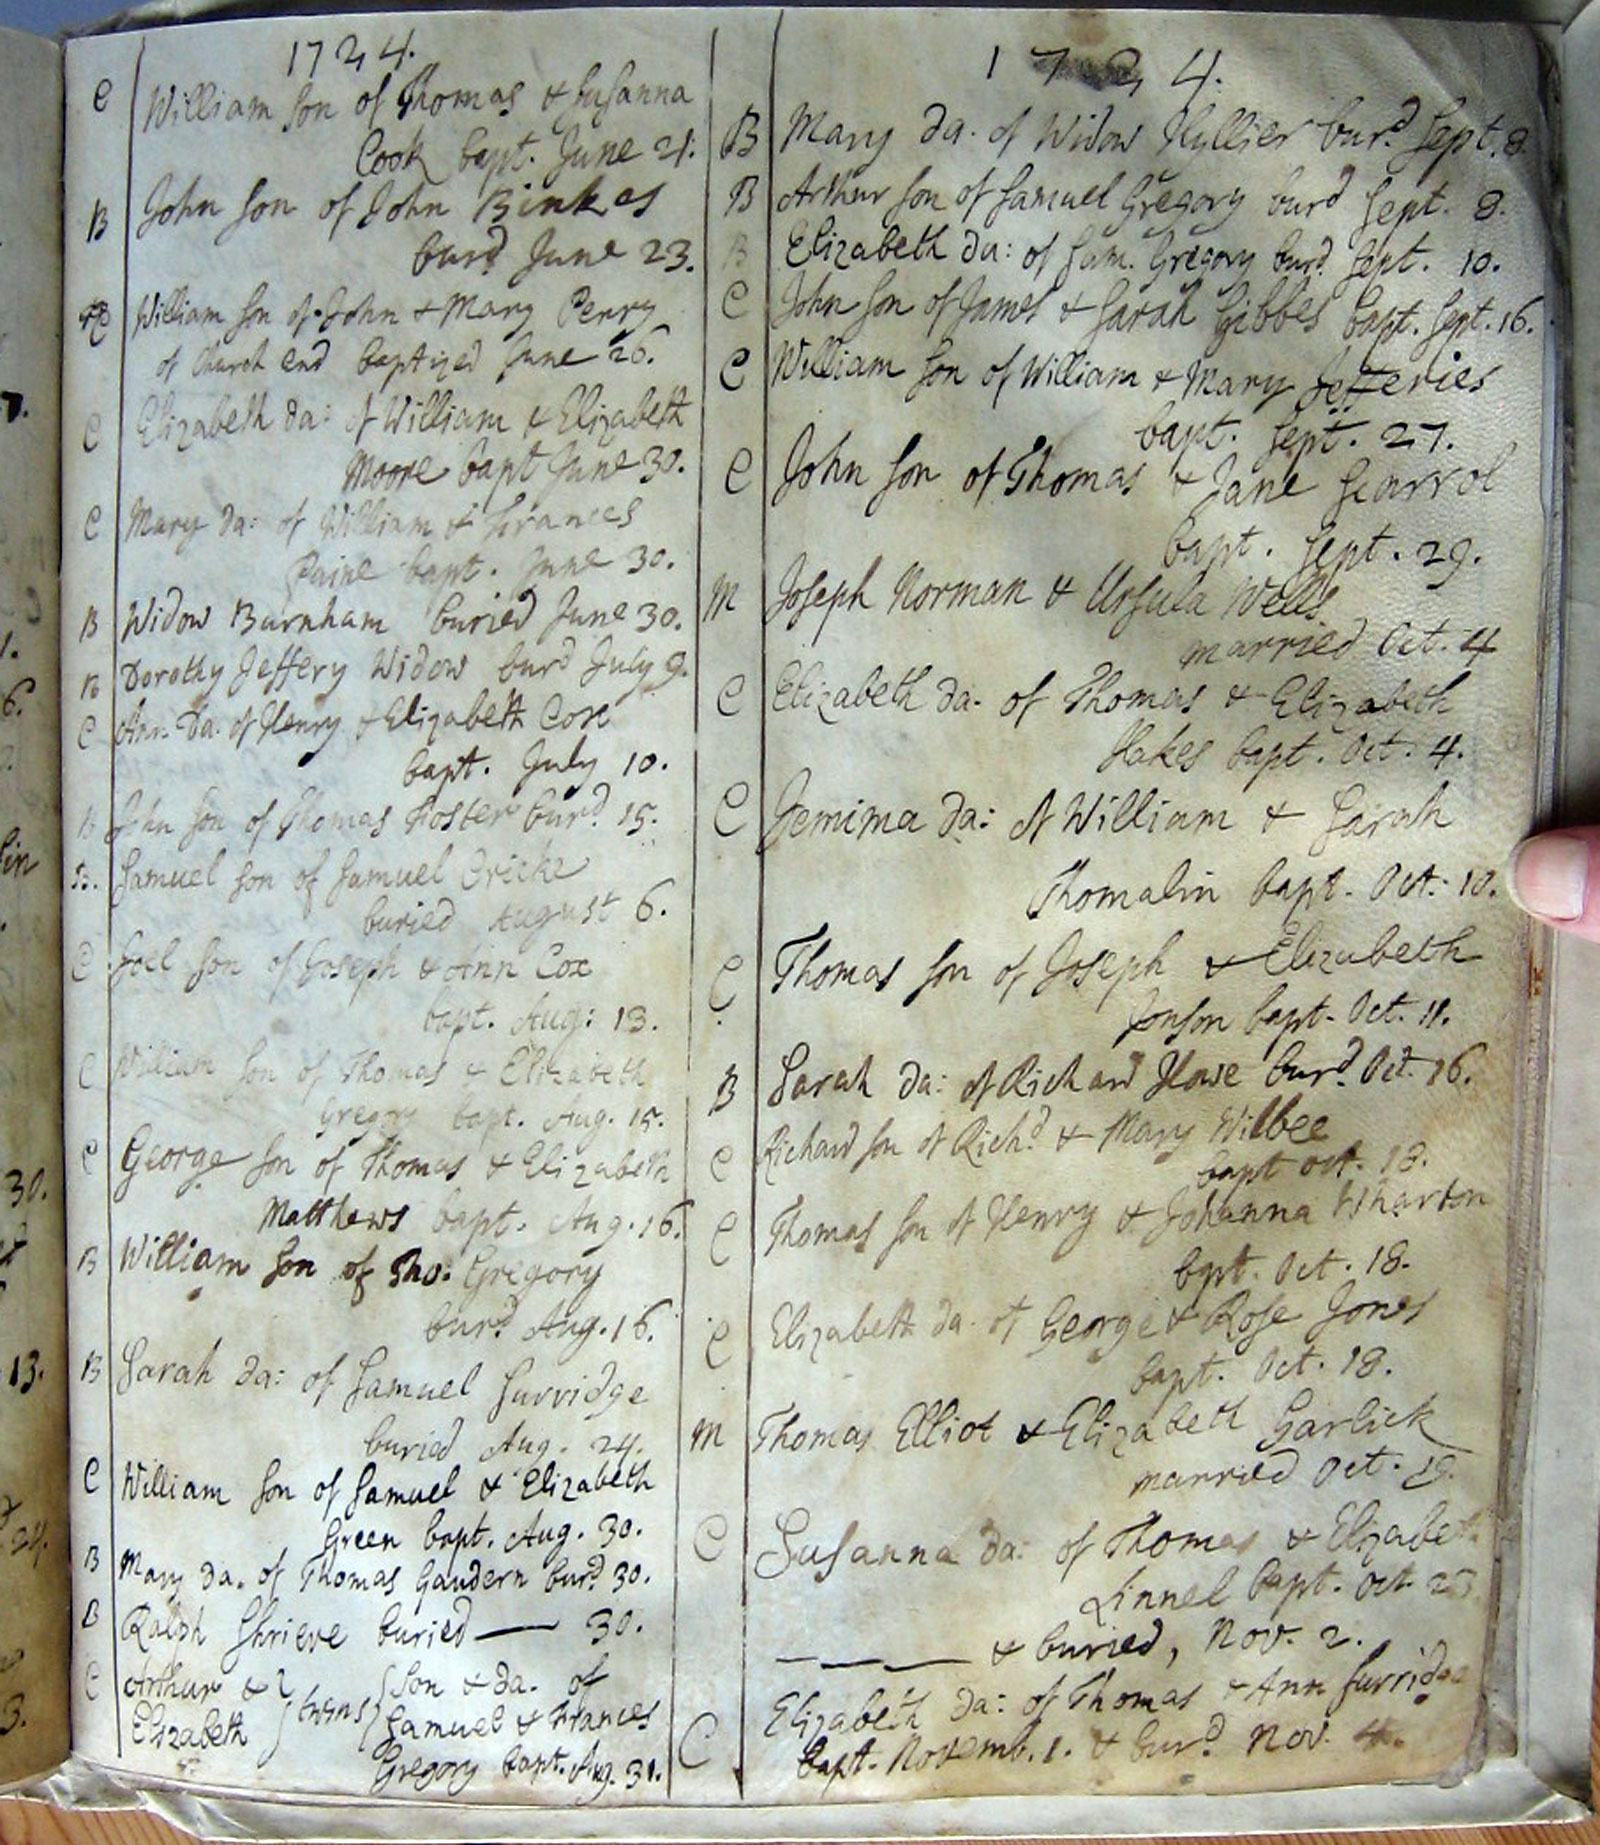 1724.
C William son of Thomas & Susanna
Cook bapt. June 21.
B John son of John Binkes
burd. June 23.
C William son of John & Mary Perry
of Church End baptized June 26.
C Elizabeth da: of William & Elizabeth
Moore bapt June 30.
C Mary da: of William & Frances
Paine bapt. June 30.
B Widow Burnham buried June 30.
B Dorothy Jeffery Widow burd July 9.
C Ann da. of Henry & Elizabeth Cox
bapt. July 10.
B John son of Thomas Foster burd. 15.
B. Samuel son of Samuel
buried August 6.
C Joel son of Joseph & Ann Cox
bapt. Aug: 13.
C William son of Thomas & Elizabeth
Gregory bapt. Aug. 15.
C George son of Thomas & Elizabeth
Matthews bapt. Aug. 16.
B William son of Tho. Gregory
burd. Aug. 16.
B Sarah da: of Samuel Surridge
buried Aug. 24.
C William son of Samuel & Elizabeth
Green bapt. Aug. 30.
B Mary da. of Thomas Gaudern burd. 30.
B Ralph Shrieve buried — 30.
C Arthur & } twins { son & da. of
Elizabeth Samuel & Frances
Gregory bapt. Aug. 31.
1724.
B Mary da. of Widow Hyllier burd. Sept. 8.
B Arthur son of Samuel Gregory burd Sept. 8.
B Elizabeth da: of Sam. Gregory burd. Sept. 10.
C John son of James & Sarah Gibbes bapt. Sept. 16.
C William son of William & Mary Jefferies
bapt. Sept. 27.
C John son of Thomas & Jane Scarrol
bapt. Sept. 29.
M Joseph Norman & Ursula Wells
married Oct. 4
C Elizabeth da. of Thomas & Elizabeth
Hakes bapt. Oct. 4.
C Jemima da: of William & Sarah
Thomalin bapt. Oct. 10.
C Thomas son of Joseph & Elizabeth
Jonson bapt. Oct. 11.
B Sarah da: of Richard Howe burd. Oct. 16.
C Richard son of Richd. & Mary Wilbee
bapt Oct. 18.
C Thomas son of Henry & Johanna Wharton
bapt. Oct. 18.
C Elizabeth da. of George & Rose Jones
bapt. Oct. 18.
M Thomas Elliot & Elizabeth Garlick
married Oct.
C Susanna da: of Thomas & Elizabeth
Linnel bapt. Oct.
— — — & buried, Nov. 2.
Elizabeth da: of Thomas & Ann Surridge
C bapt. Novemb. 1. & burd. Nov. 4.